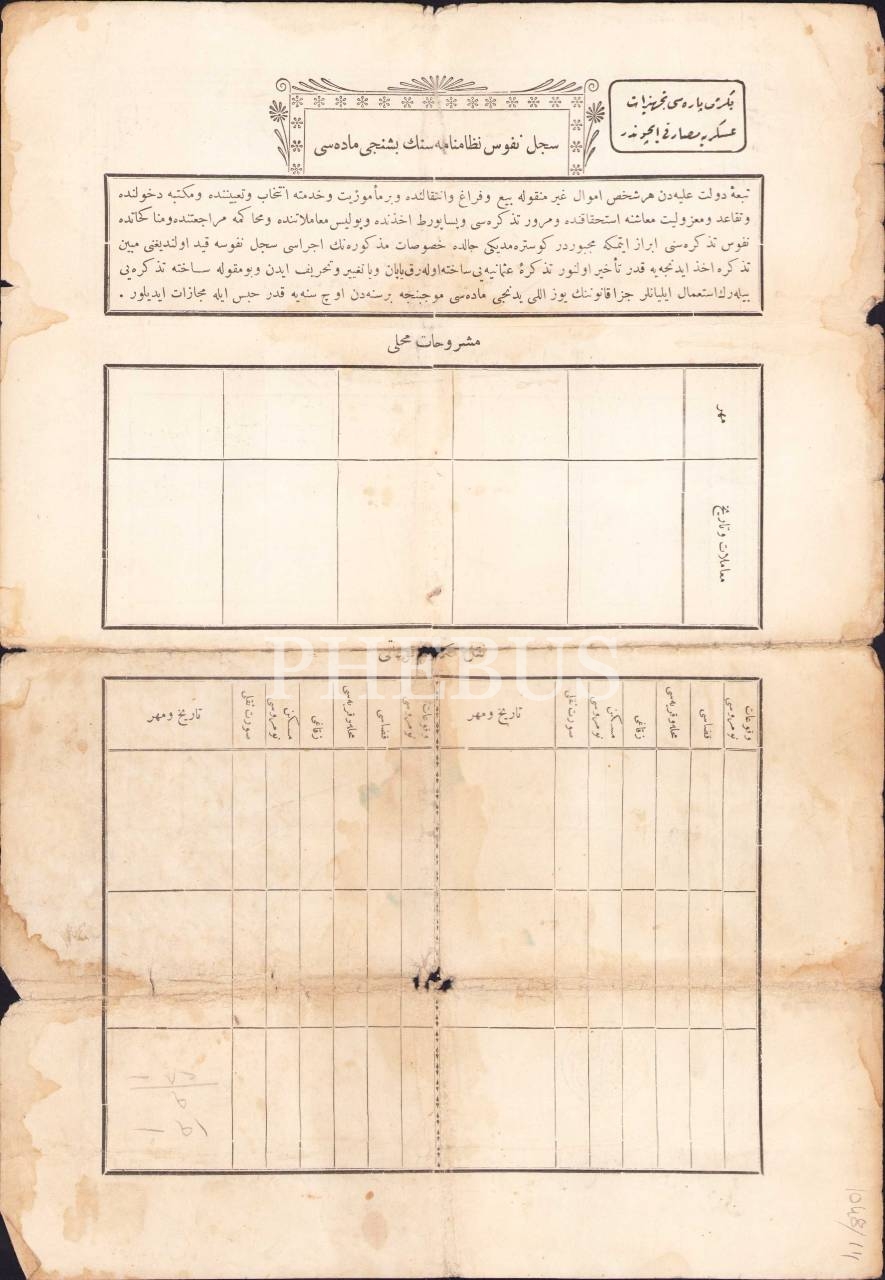 یكرمی پاره‌سی تجهیزات
عسكریه مصارفی ایچوندر
سجل نفوس نظامنامه سنك بشنجی ماده سی
تبعهٔ دولت علیه‌دن هر شخص اموال غیر منقوله بیع و فراغ وانتقالنده وبر مأموریت وخدمته انتخاب وتعییننده ومكتبه دخولنده
وتقاعد ومعزولیت معاشنه استحقاقنده ومرور تذكره‌سی وپساپورط اخذنده وپولیس معاملاتنده ومحاكمه مراجعتنده ومناكحاتده
نفوس تذكره‌سنی ابراز ایتمكه مجبوردر كوستره‌مدیكی حالده خصوصات مذكوره‌نك اجراسی سجل نفوسه قید اولندیغنی مبین
تذكره اخذ ایدنجه‌یه قدر تأخیر اولنور تذكرهٔ عثمانیه‌یی ساخته اوله‌رق یاپان ویا تغییر وتحریف ایدن وبومقوله ساخته تذكره‌یی
بیله‌رك استعمال ایلیانلر جزا قانوننك یوز اللی یدنجی ماده‌سی موجبنجه برسنه‌دن اوچ سنه‌یه قدر حبس ایله مجازات ایدیلور .
مشروحات محلی
مهر
معاملات و تاریخ
PHEBUS
وقوعات نومروسی
قضاسی
محله وقریه‌سی
زقاغی
مسكن نومروسی
صورت نقل
تاریخ ومهر
وقوعات نومروسی
قضاسی
محله وقریه‌سی
زقاغی
مسكن نومروسی
صورت نقل
تاریخ ومهر
1048/14